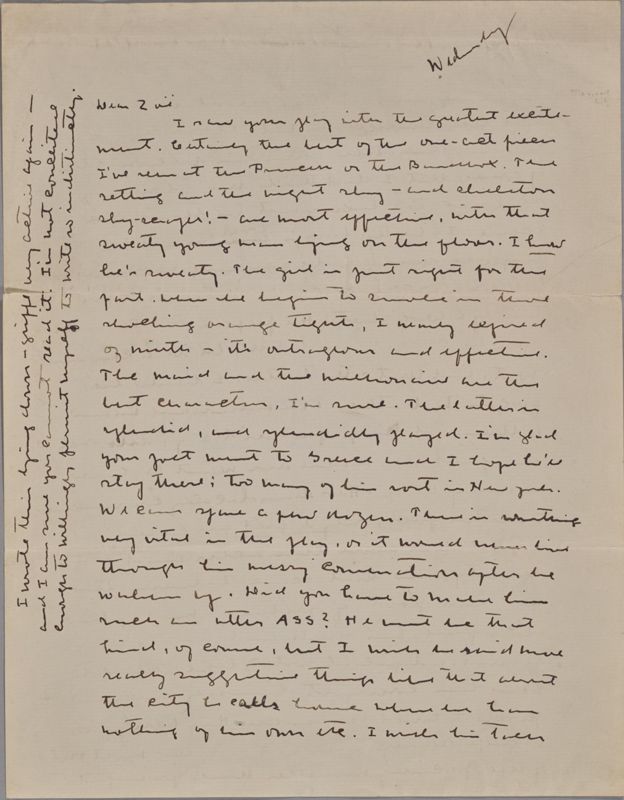 Wednesday
Dear Zoë
I saw your play with the greatest excite-
ment. Certainly the best of the one-act pieces
I've seen at the Princess or the Bandbox. The
setting and the night sky — and skeleton
sky-scraper! — are most effective, with that
sweaty young man lying on the floor. I know
he's sweaty. The girl is just right for the
part. When she begins to smoke in those
shocking orange tights, I nearly expired
of mirth — it's outrageous and effective.
The maid and the millionaire are the
best characters, I'm sure. The latter is
splendid, and splendidly played. I'm glad
your poet went to Greece and I hope he'll
stay there; too many of his sort in New York.
We can spare a few dozen. There is something
very vital in the play, or it would never live
through his messy conversation after he
wakes up. Did you have to make him
such an utter ASS? He must be that
kind, of course, but I wish he said more
really suggestive things like that about
the city he calls home where he has
nothing of his own etc. I wish his talk
I wrote this lying down — grippe very active again —
and I am sure you cannot read it. I'm not conceited
enough to willingly permit myself to write so indistinctly.